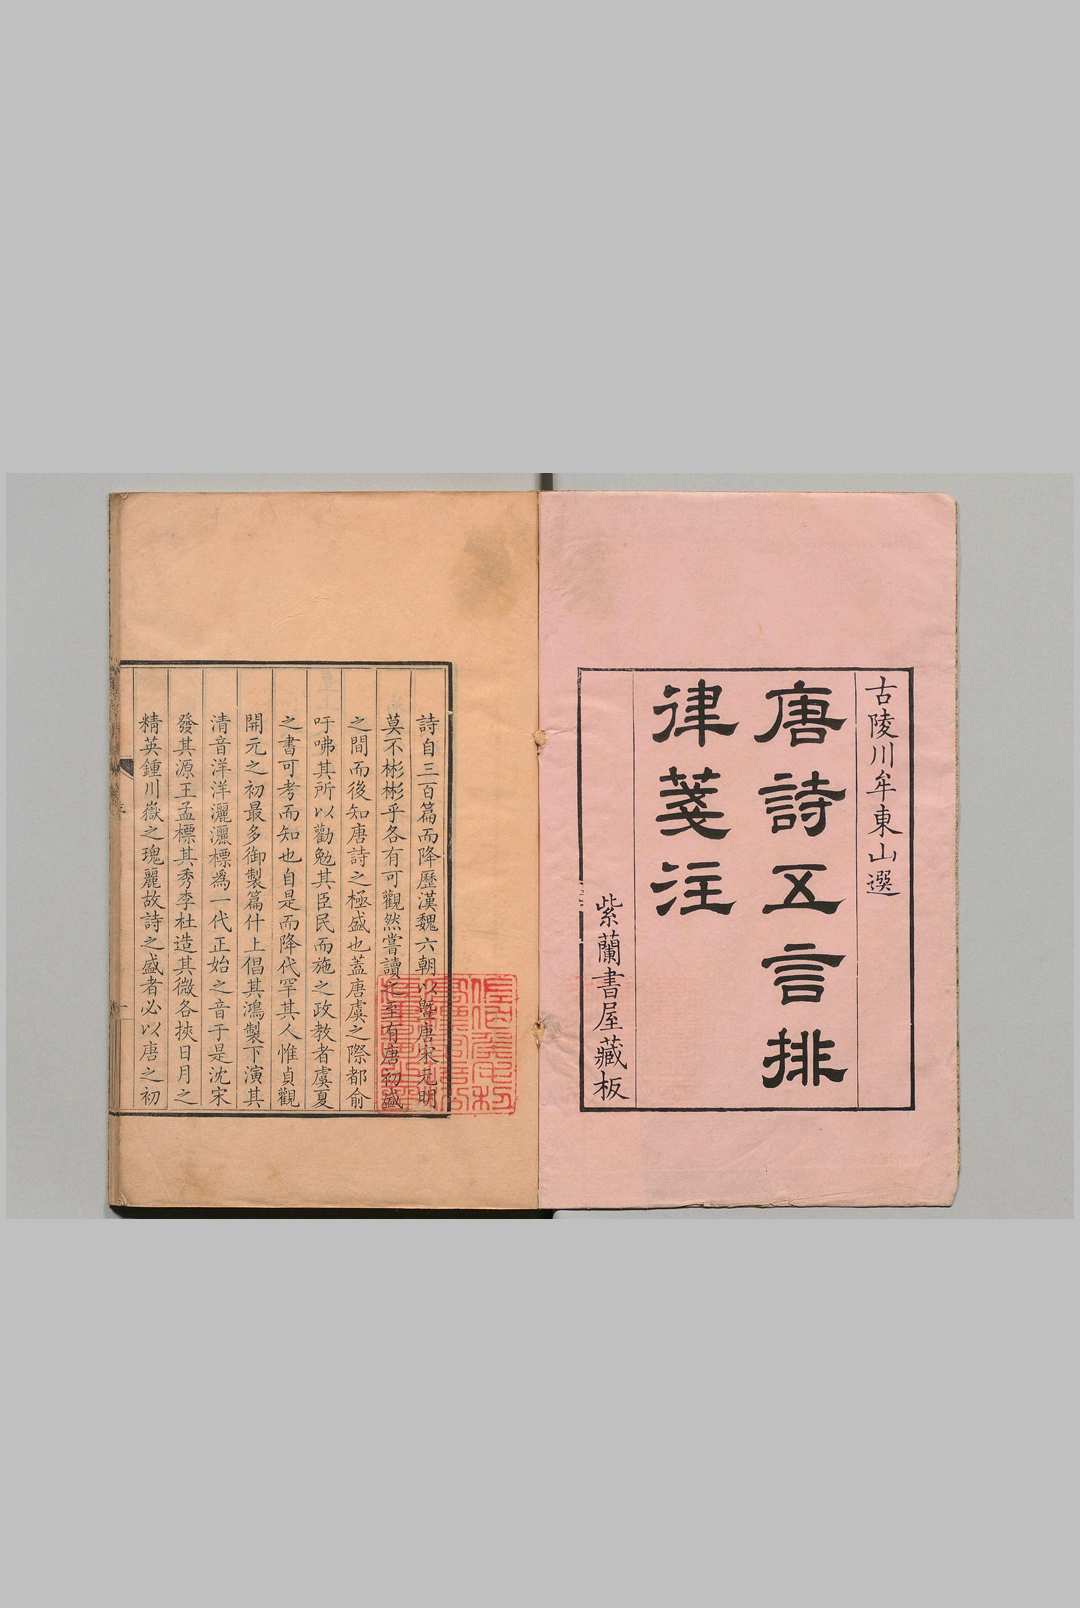 古陵川牟東山選
唐詩五言排
律箋注
紫蘭書屋藏板
詩自三百篇而降歷漢魏六朝以暨唐宋元明
莫不彬彬乎各有可觀然嘗讀之至有唐初盛
之間而後知唐詩之極盛也蓋唐虞之際都俞
吁咈其所以勸勉其臣民而施之政教者虞夏
之書可考而知也自是而降代罕其人惟貞觀
開元之初最多御製篇什上倡其鴻製下演其
清音洋洋灑灑標為一代正始之音于是沈宋
發其源王孟標其秀李杜造其微各挾日月之
精英鍾川嶽之瑰麗故詩之盛者必以唐之初